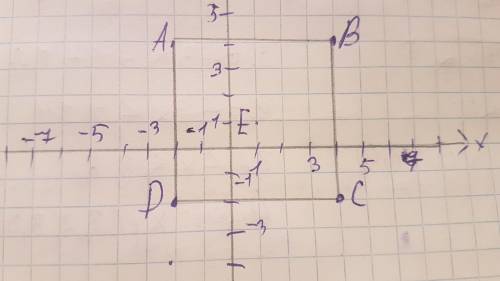 5
A B
3
1 E
-7 -5 -3 -1
1 3 5 x
-1
D C
-3